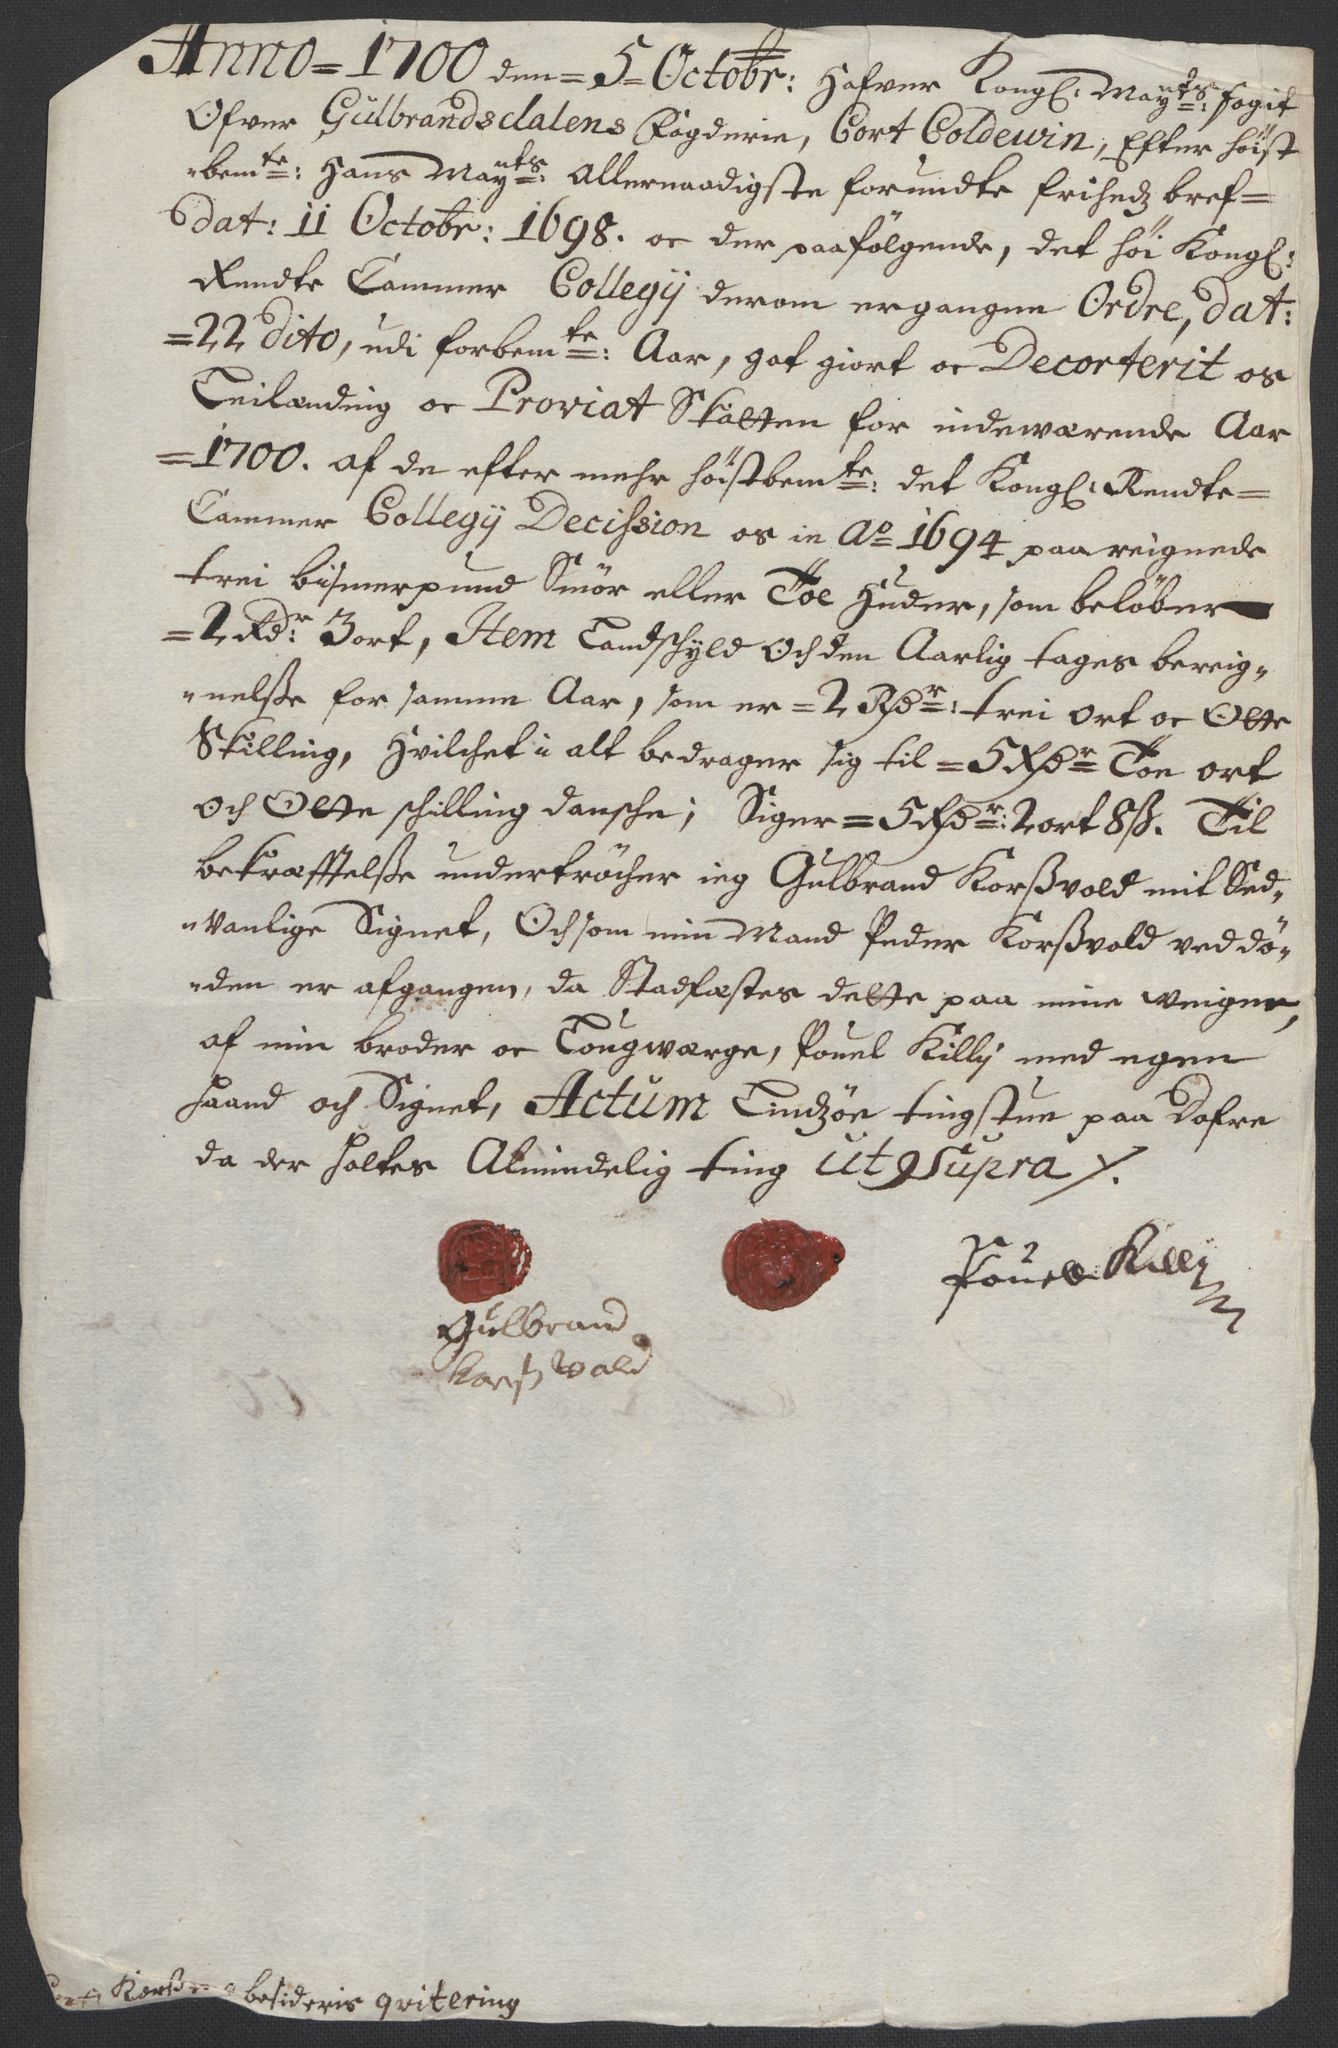 Anno = 1700 den = 5 = Octobr: Hafver Kongl: Mayts: fogit
Ofver Gulbrandsdalens fogderie, Cort Coldewin, Efter høist
bemte: Hans Mayts: Allernaadigste forundte frihedz bref =
dat: 11 Octobr: 1698. oc der paafølgende, det høi Kongl:
Rendte Cammer Collegij derom ergangne Ordre, dat:
= 22 dito, udi forbemte: Aar, got giort oc Decorterit os
Leilænding oc Proviat Skatten for indeværende Aar
= 1700. af de efter mehr høistbemte: det Kongl: Rendte =
Cammer Collegij Decission os in Ao 1694 paa reignede
trei bismerpund Smør eller Toe Huder, som beløber
= 2 Rdr 3 ort, Item Landschyld och den Aarlig tages bereig-
nelsse for samme Aar, som er = 2 Rdr: trei ort oc Otte
Skilling, Hvilchet i alt bedrager sig til = 5 Rdr Toe ort
och Otte schilling dansche; Siger = 5 Rdr: 2 ort 8 ß. Til
bekræfftelsse undertrøcher ieg Gulbrand Korßvold mit Sed-
vanlige Signet, Och som min Mand Peder Korßvold ved dø-
den er afgangen, da Stadfæstes dette paa mine weigne,
af min broder oc Lougværge, Pouel Killij med egen
haand och Signet, Actum Lindsøe tingstue paa Dofre
da der holtes Almindelig ting ut Supra /.
Pouel Killij
Gulbrand
Korß Vold
besideris qvitering